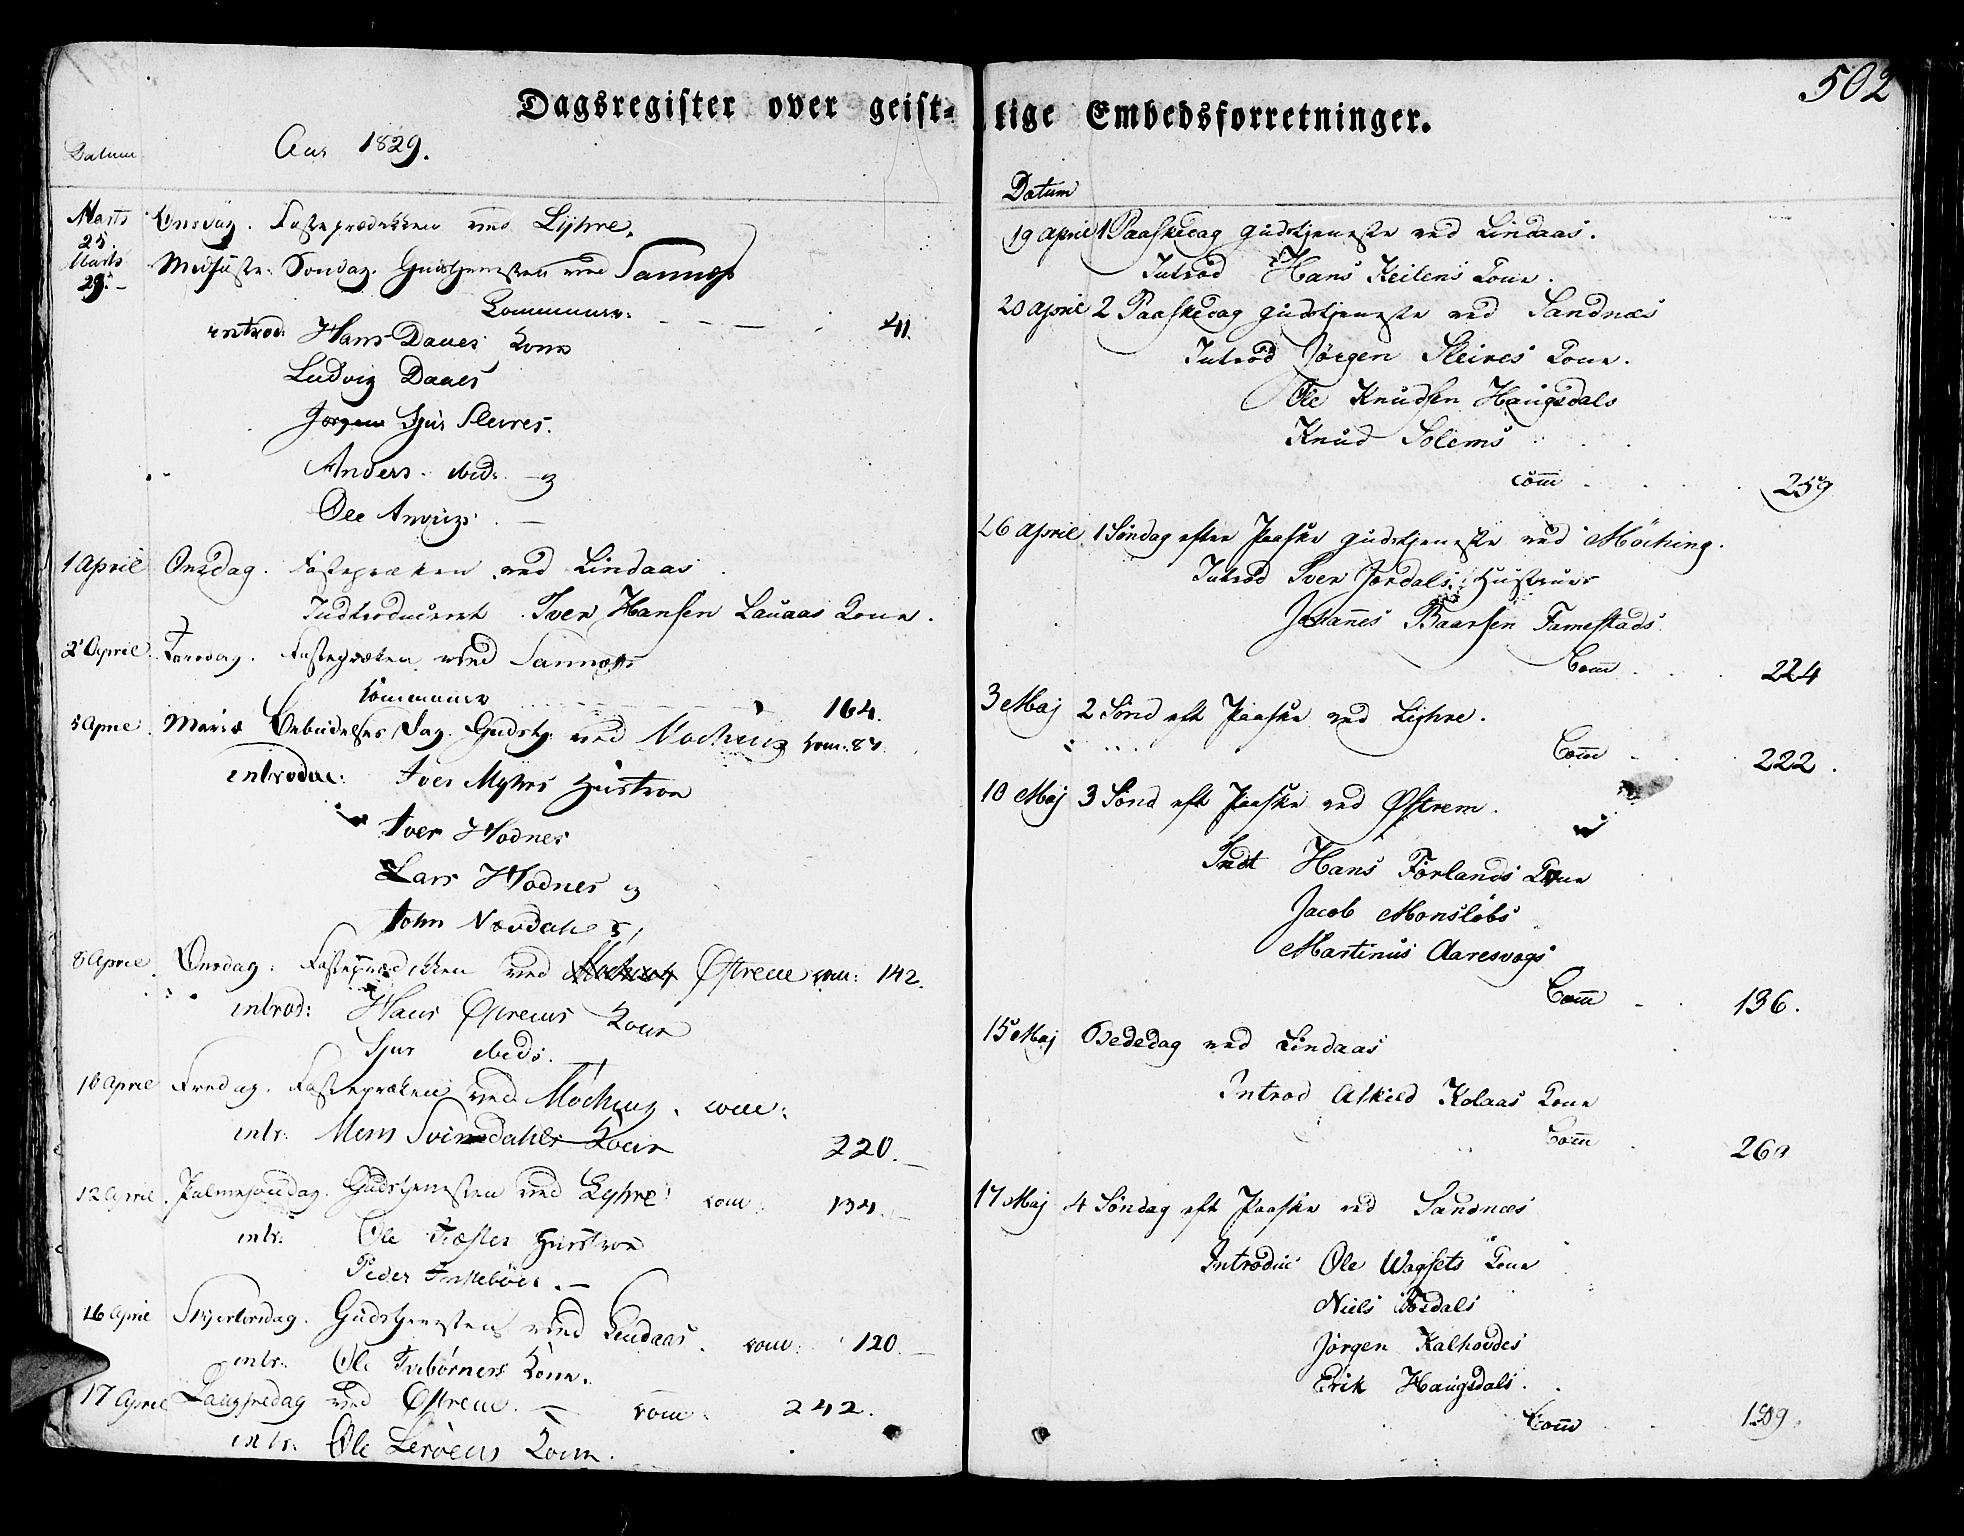 Dagsregister over geist-
Aar 1829.
Datum
Marts 25. Onsdag. Fasteprædikken ved Lyhre.
Marts 29. Midfaste Søndag. Gudstjenesten ved Sannæs
Communic: 41.
introd: Hans Daaes Kone
Ludvig Daaes
Jørgens Sjur Sleires.
Anders ibid: og
Ole
1 April Onsdag. Fastepræken ved Lindaas.
Indtroduceret Iver Hansen Lauaas Kone.
2 April Torsdag. Fastepræken ved Sannæs
Communic 164.
5 April Mariæ Bebudelses Dag. Gudstj: ved Moching Com: 87.
introduc: Iver Myhres Hustroe
Iver Hodnes
Lars Hodnes og
John Nævdahls
8 April Onsdag: Fasteprædikken ved Østrem com: 142.
introd: Hans Østrems Kone
Sjur ibids.
10 April Fredag. Fastepræken ved Moching. com:
intr: Mons Svindahls Kone 220.
12 April Palmesøndag. Gudstjenesten ved Lyhre: com: 134.
intr: Ole Hustroe
Peder
16 April Skjertorsdag. Gudstjenesten ved Lindaas. com: 120.
intr: Ole Kone.
17 April Langfredag ved Østrem. com: 242.
intr: Ole Lerøens Kone.
502
lige Embedsforretninger.
Datum
19 April 1 Paaskedag Gudstjeneste ved Lindaas.
Introd Hans Keilens Kone.
20 April 2 Paaskedag Gudstjeneste ved Sandnæs
Introd Jørgen Sleires Kone.
Ole Knudsen Haugsdals
Knud Solems
Com 259
26 April 1 Søndag efter Paaske Gudstjeneste ved Moching.
Introd Iver Jordals Hustrue
Johannes Baarsen Famestads
Com 224
3 Maj 2 Sønd eft Paaske ved Lyhre.
Com 222.
10 Maj 3 Sønd eft Paaske ved Østrem.
Indt Hans Førlands Kone
Jacob Monsløbs
Martinus Aaresvogs
Com 136.
15 Maj Bededag ved Lindaas
Introd Askild Kolaas Kone
Com 260
17 Maj 4 Søndag eft Paaske ved Sandnæs
Introduc Ole Wagsets Kone
Niels
Jørgen Kalhovdes
Erik Haugsdals.
Com 189.